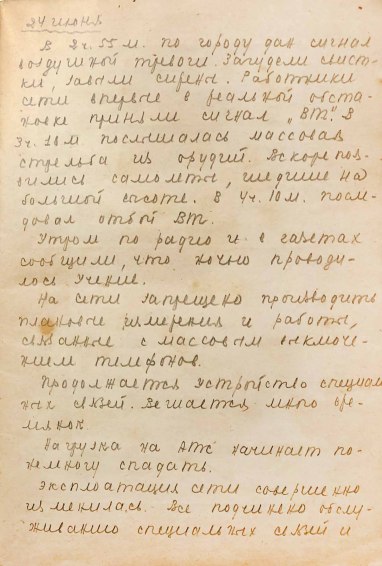 24 июня
В 2ч. 55м. по городу дан сигнал
воздушной тревоги. Загудели свист-
ки, завыли сирены. Работники
сети впервые в реальной обста-
новке приняли сигнал „ВТ". В
3ч. 10м. послышалась массовая
стрельба из орудий. Вскоре поя-
вились самолеты, шедшие на
большой высоте. В 4ч. 10м. после-
довал отбой ВТ.
Утром по радио и в газетах
сообщили, что ночью проводи-
лось учение.
На сети запрещено производить
плановые измерения и работы,
связанные с массовым выключе-
нием телефонов.
Продолжается устройство специаль
ных связей. Вешается много вре-
мянок.
Нагрузка на АТС начинает по-
немногу спадать.
Эксплоатация сети совершенно
изменилась. Все подчинено обслу-
живанию специальных связей и